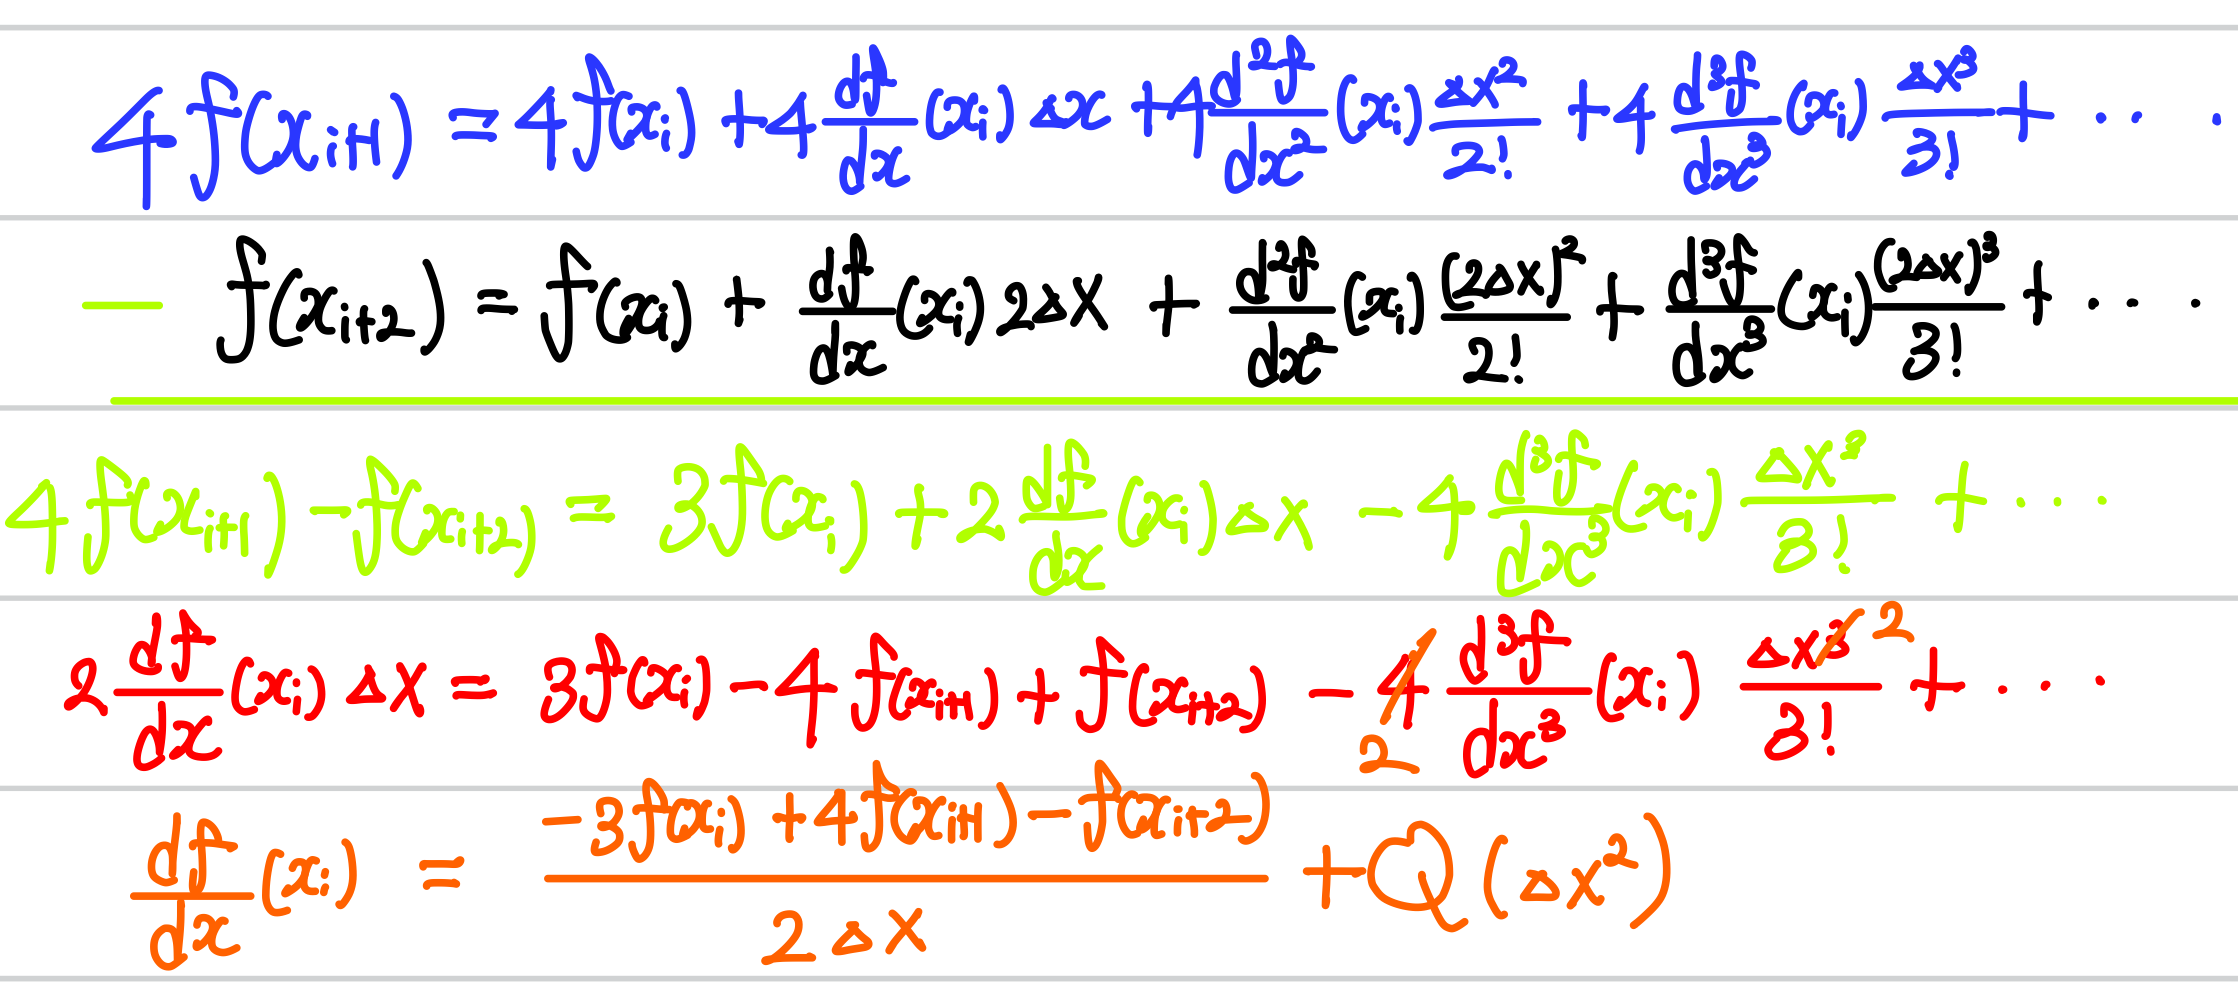 4f(x_{i+1}) = 4f(x_i) + 4 df/dx (x_i) Δx + 4 d²f/dx² (x_i) Δx²/2! + 4 d³f/dx³ (x_i) Δx³/3! + ...
− f(x_{i+2}) = f(x_i) + df/dx (x_i) 2Δx + d²f/dx² (x_i) (2Δx)²/2! + d³f/dx³ (x_i) (2Δx)³/3! + ...
4f(x_{i+1}) − f(x_{i+2}) = 3f(x_i) + 2 df/dx (x_i) Δx − 4 d³f/dx³ (x_i) Δx³/3! + ...
2 df/dx (x_i) Δx = 3f(x_i) − 4f(x_{i+1}) + f(x_{i+2}) − 4 2 d³f/dx³ (x_i) Δx³ ²/3! + ...
df/dx (x_i) = (−3f(x_i) + 4f(x_{i+1}) − f(x_{i+2}))/(2Δx) + Q(Δx²)